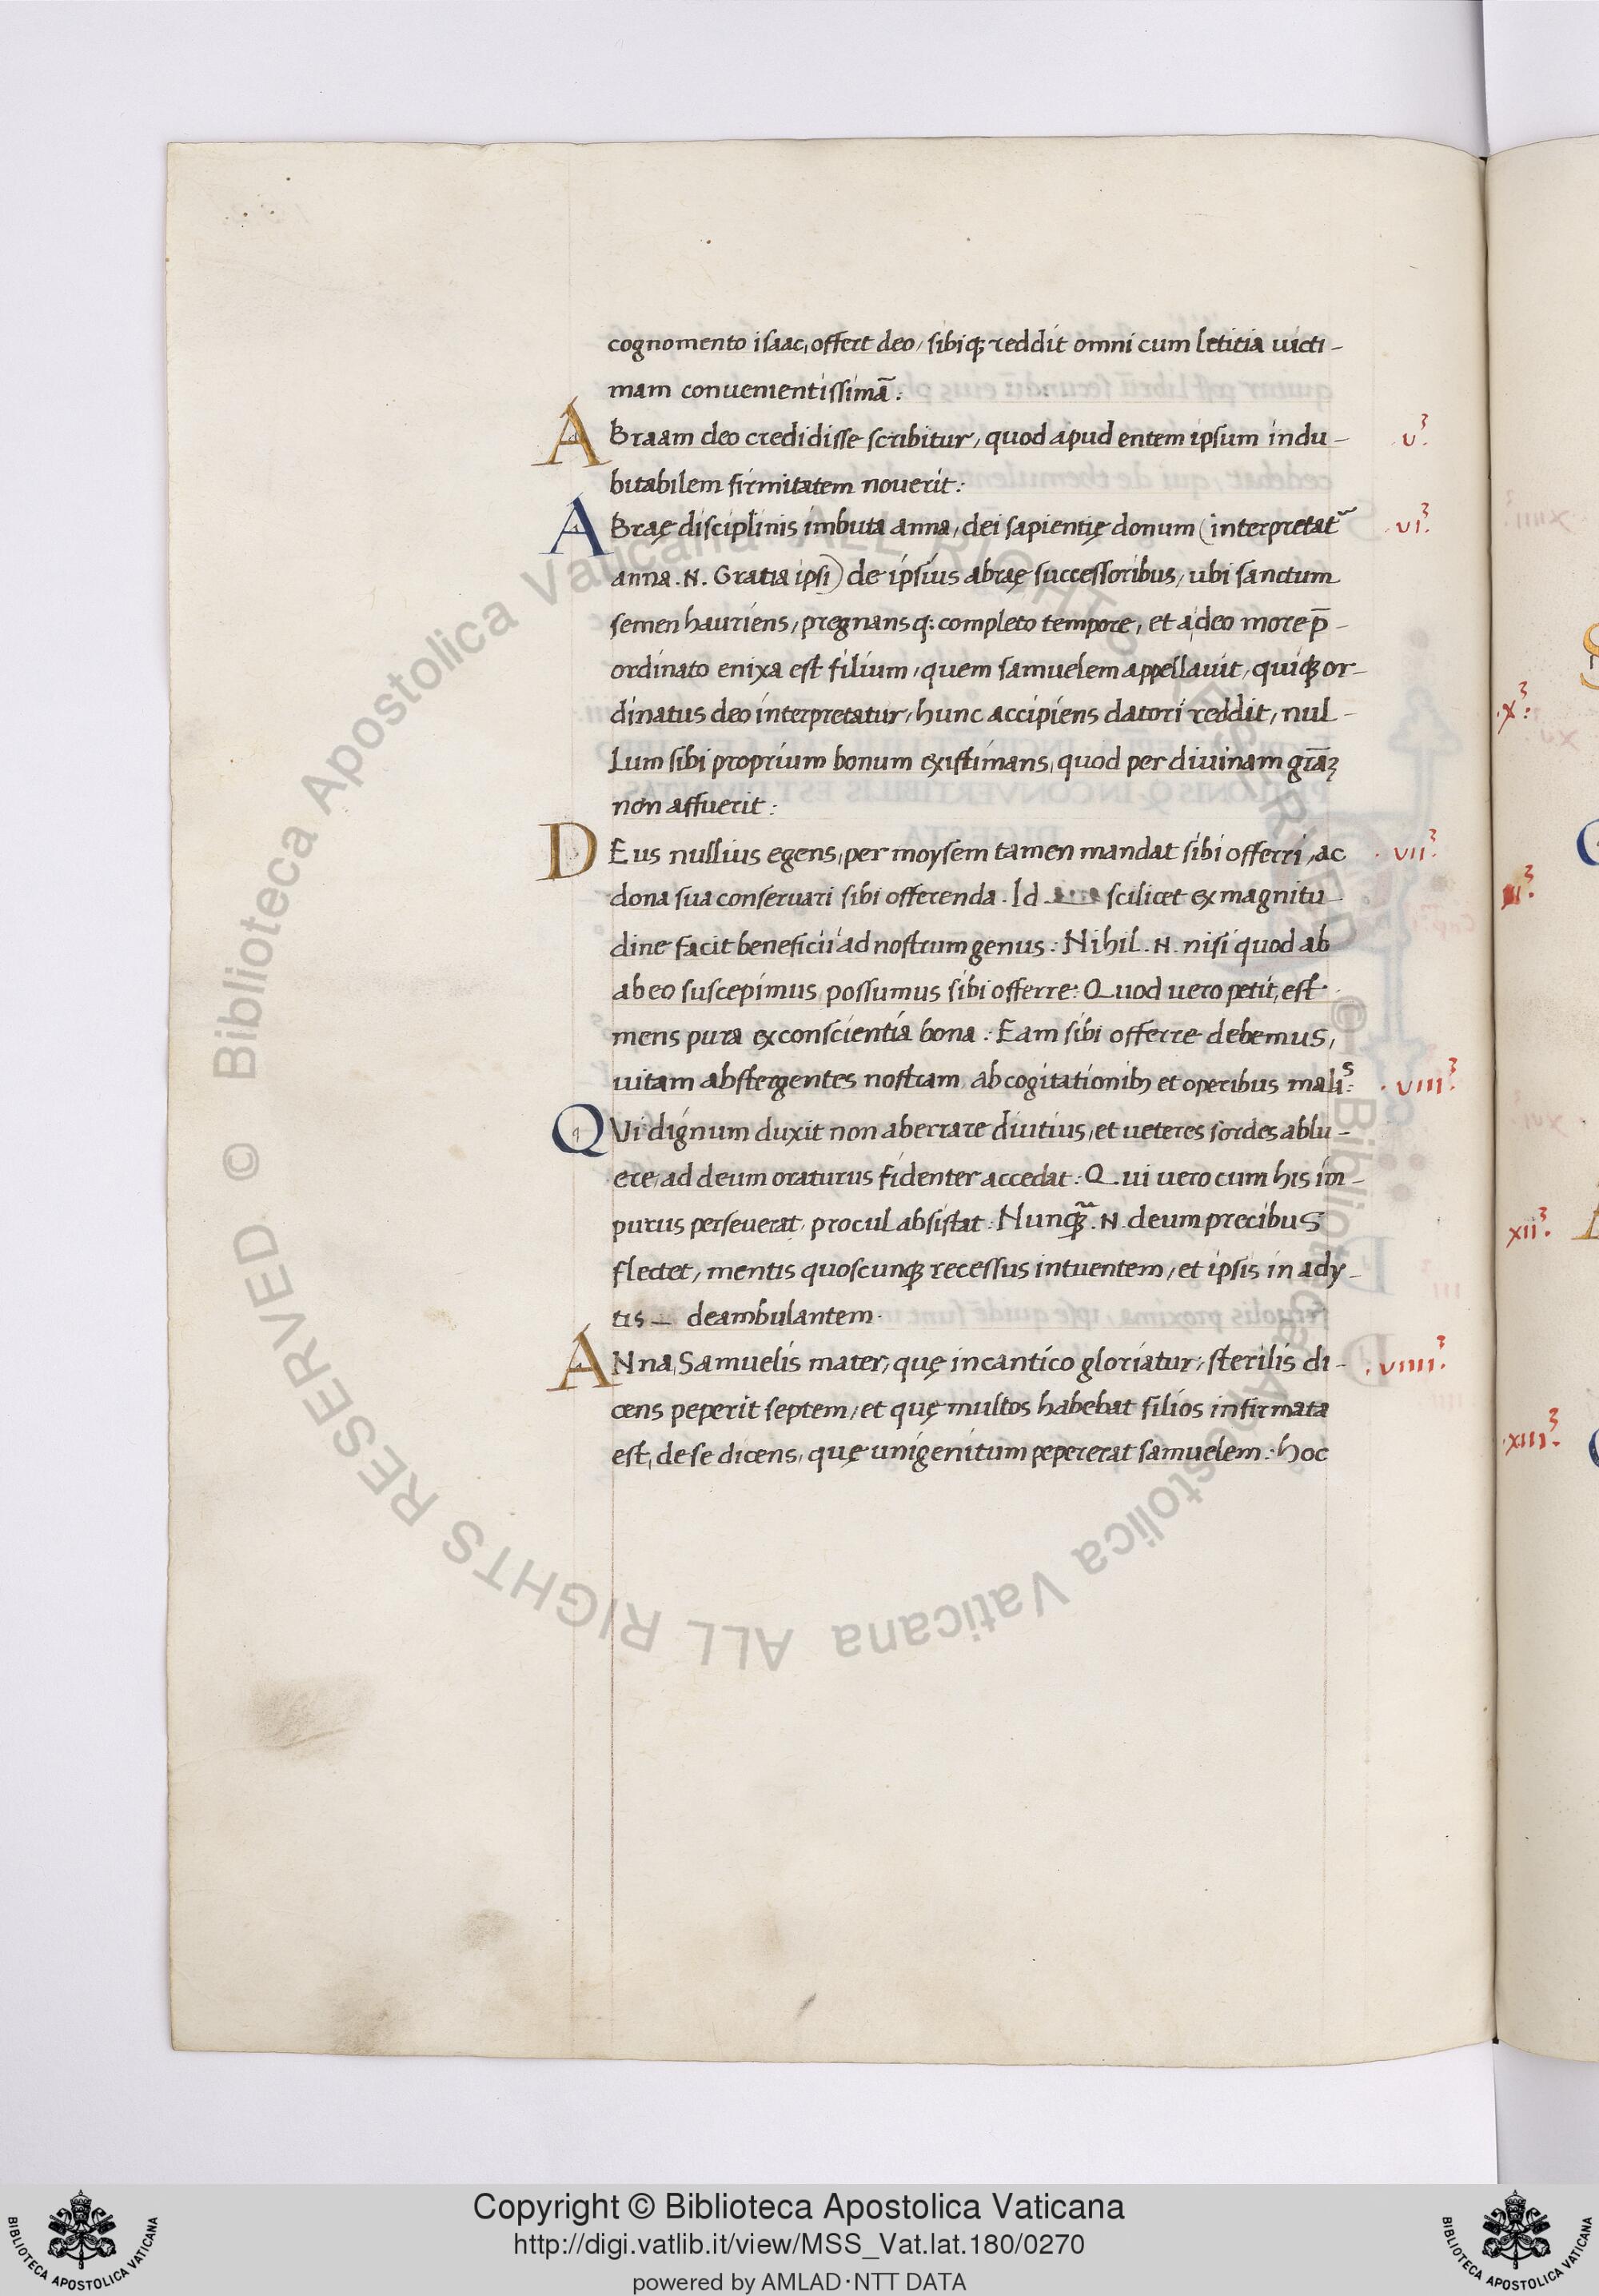 cognomento isaac, offert deo, sibiq; reddit omni cum letitia uicti-
mam conuenientissimā:
ABraam deo credidisse scribitur, quod apud entem ipsum indu- .v³.
bitabilem firmitatem nouerit:
ABraę disciplinis imbuta anna, dei sapientię donum (interpretat~ .vi³.
anna .N. Gratia ipsi) de ipsius abraę successoribus, ubi sanctum
semen hauriens, pregnansq: completo tempore, et adeo more p̄-
ordinato enixa est filium, quem samuelem appellauit, quiq; or-
dinatus deo interpretatur, hunc accipiens datori reddit, nul-
lum sibi proprium bonum existimans, quod per diuinam grāꝫ .x³:
non affuerit:
DEus nullius egens, per moysem tamen mandat sibi offerri, ac .vii³.
dona sua conseruari sibi offerenda. Id scilicet ex magnitu-
dine facit beneficii ad nostrum genus: Nihil .N. nisi quod ab
ab eo suscepimus possumus sibi offerre: Quod uero petit, est
mens pura ex conscientia bona: Eam sibi offerre debemus,
uitam abstergentes nostram ab cogitationibꝫ et operibus malis: .viii³.
QVi dignum duxit non aberrare diutius, et ueteres sordes ablu-
ere, ad deum oraturus fidenter accedat: Qui uero cum his im-
puris perseuerat, procul absistat: Nunq̃ .N. deum precibus xii³.
flectet, mentis quoscunq; recessus intuentem, et ipsis in ady-
tis — deambulantem.
ANna, Samuelis mater, quę in cantico gloriatur, sterilis di- .viiii³.
cens peperit septem, et quę multos habebat filios infirmata
est, de se dicens, quę unigenitum pepererat samuelem: hoc .xiii³.
Biblioteca Apostolica Vaticana ALL RIGHTS RESERVED © Biblioteca Apostolica Vaticana ALL RIGHTS RESERVED ©
Copyright © Biblioteca Apostolica Vaticana
http://digi.vatlib.it/view/MSS_Vat.lat.180/0270
powered by AMLAD·NTT DATA
BIBLIOTECA APOSTOLICA VATICANA
BIBLIOTECA APOSTOLICA VATICANA